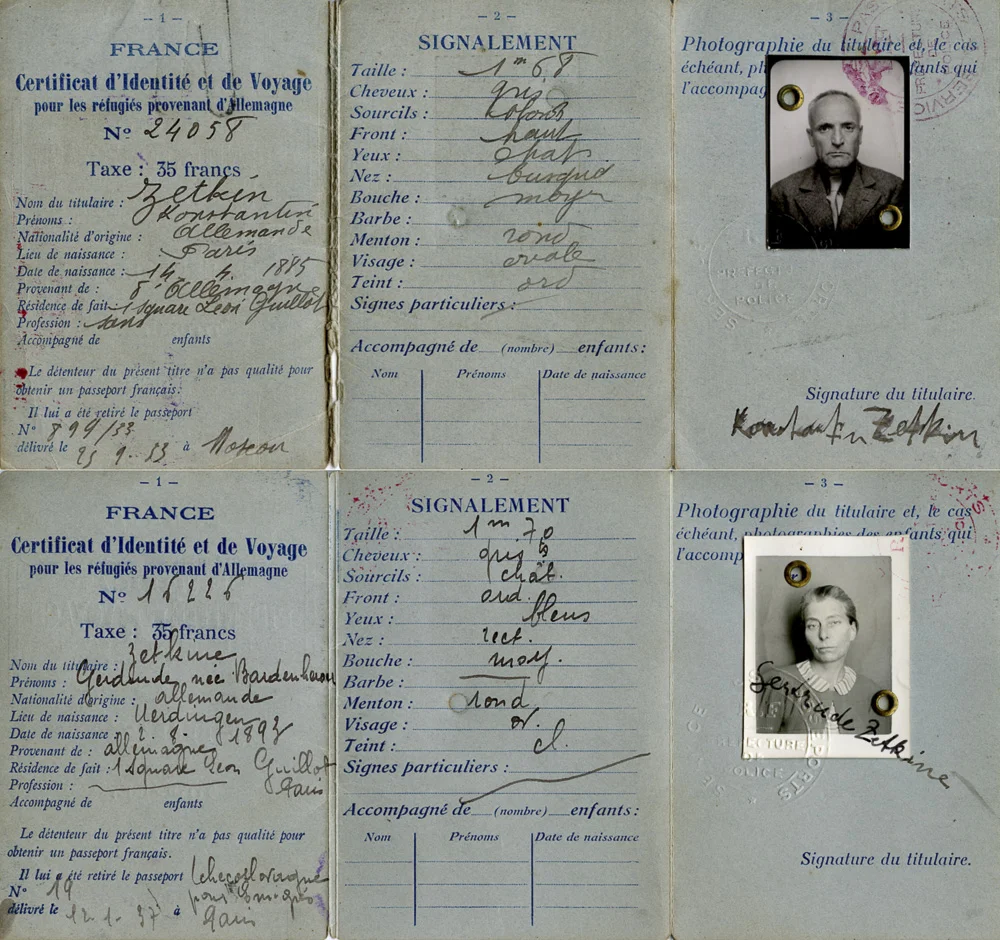 - 1 -
FRANCE
Certificat d'Identité et de Voyage
pour les réfugiés provenant d'Allemagne
N° 24058
Taxe : 35 francs
Nom du titulaire : Zetkin
Prénoms : Konstantin
Nationalité d'origine : Allemande
Lieu de naissance : Paris
Date de naissance : 14. 4. 1885
Provenant de : d'Allemagne
Résidence de fait : 1 square Léon Guillot
Profession : sans
Accompagné de enfants
Le détenteur du présent titre n'a pas qualité pour
obtenir un passeport français.
Il lui a été retiré le passeport
N° 899/33
délivré le 25 9. 33 à Moscou
- 2 -
SIGNALEMENT
Taille : 1m 68
Cheveux : gris
Sourcils :
Front : haut
Yeux : chat
Nez : busqué
Bouche : moy
Barbe :
Menton : rond
Visage : ovale
Teint : ord
Signes particuliers :
Accompagné de (nombre) enfants :
Nom Prénoms Date de naissance
- 3 -
Photographie du titulaire et, le cas
échéant, ph fants qui
l'accompag
PREFECTURE
POLICE
Signature du titulaire.
Konstantin Zetkin
- 1 -
FRANCE
Certificat d'Identité et de Voyage
pour les réfugiés provenant d'Allemagne
N° 16226
Taxe : 35 francs
Nom du titulaire : Zetkine
Prénoms : Gertrude née Bardenheuer
Nationalité d'origine : allemande
Lieu de naissance : Uerdingen
Date de naissance : 2. 8. 1893
Provenant de : allemagne
Résidence de fait : 1 square Léon Guillot
Paris
Profession :
Accompagné de enfants
Le détenteur du présent titre n'a pas qualité pour
obtenir un passeport français.
Il lui a été retiré le passeport tchécoslovaque
N° 19 pour Emigrés
délivré le 12. 1. 37 à Paris
- 2 -
SIGNALEMENT
Taille : 1m 70
Cheveux : gris
Sourcils : chât.
Front : ord.
Yeux : bleus
Nez : rect.
Bouche : moy.
Barbe :
Menton : rond
Visage : ov.
Teint : cl.
Signes particuliers :
Accompagné de (nombre) enfants :
Nom Prénoms Date de naissance
- 3 -
Photographie du titulaire et, le cas
échéant, photographies des enfants qui
l'accomp
Gertrude Zetkine
PREFECTURE
POLICE
Signature du titulaire.